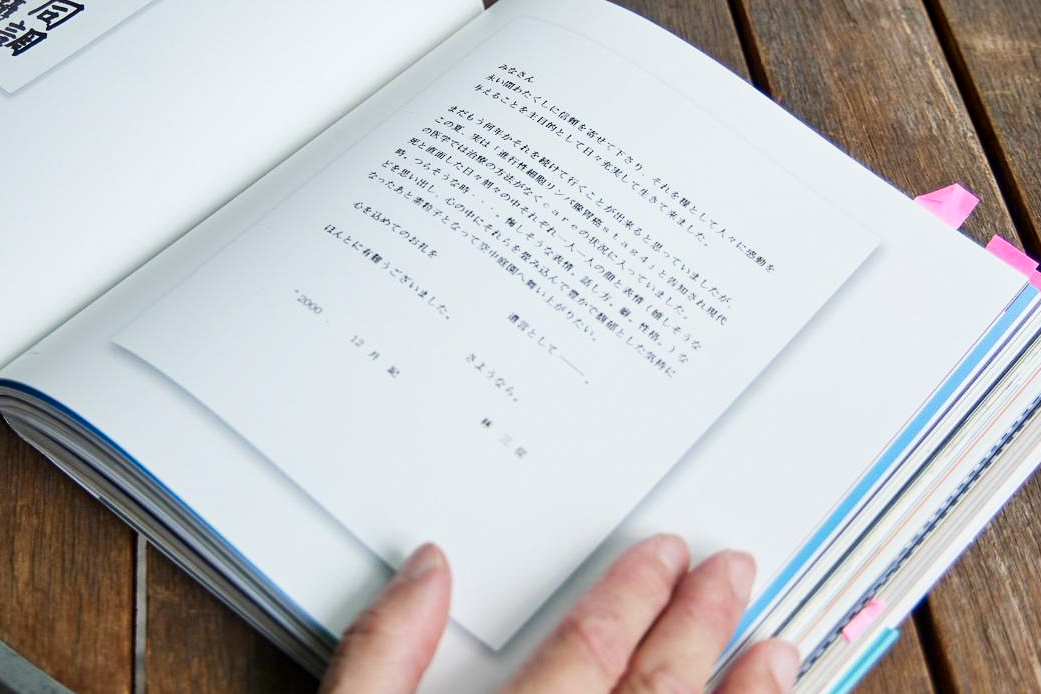 同
調
みなさん
永い間わたくしに信頼を寄せて下さり、それを糧として人々に感動を
与えることを主目的として日々充実して生きて来ました。
まだもう何年かそれを続けて行くことが出来ると思っていましたが、
この夏、実は「進行性細胞リンパ腺胃癌stage4」と告知され現代
の医学では治療の方法がなくcareの状況に入っていました。
死と直面した日々刻々の中それぞれ一人一人の顔と表情(嬉しそうな
時、つらそうな時・・・。悔しそうな表情。話し方。癖。性格。)な
どを思い出し、心の中にそれらを畳み込んで豊かで馥郁とした気持に
なったあと素粒子となって空中庭園へ舞い上がりたい。
遺言として――。
心を込めてのお礼を
ほんとに有難うございました。
さようなら。
2000.
12月 記
林 三